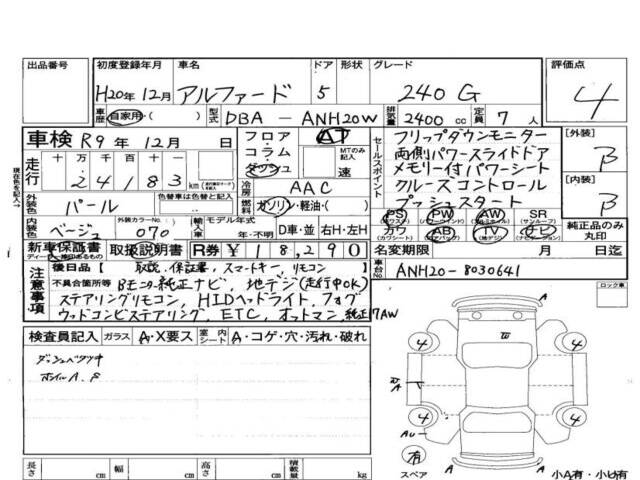 出品番号
初度登録年月 H20年12月
車名 アルファード
ドア 5
形状
グレード 240 G
評価点 4
車歴 自家用・( )
型式 DBA - ANH20W
排気量 2400 cc
定員 7 人
車検 R9年 12月 日
フロア・コラム・ダッシュ
AT
MTのみ記入 速
セールスポイント
フリップダウンモニター
両側パワースライドドア
メモリー付パワーシート
クルーズコントロール
プッシュスタート
[外装] B
[内装] B
現在色を記入→
走行 十万 万 千 百 十 一
24183 km
冷房 AAC
外装色 パール
色替車は色替えと記入
燃料 ガソリン・軽油・( )
内装色 ベージュ
外装カラーNo. 070
輸入車
モデル年式 年・不明
D車・並 右H・左H
PS PW AW SR
カワ AB TV ナビ
純正品のみ丸印
新車保証書 取扱説明書
R券 ¥18,290
名変期限 月 日迄
注意事項
後日品 [取説、保証書、スマートキー、リモコン
不具合箇所等 Bモニター純正ナビ、地デジ(走行中OK)
ステアリングリモコン、HIDヘッドライト、フォグ
ウッドコンビステアリング、ETC、オットマン、純正17AW
車台No. ANH20-8030641
ロック車
検査員記入 ガラス A・X要ス 室内シート A・コゲ・穴・汚れ・破れ
ホイルA.P
W
4 4
A
4 4
有
スペア
A A
長さ cm 幅 cm 高さ cm 積載量 kg
小A有・小U有